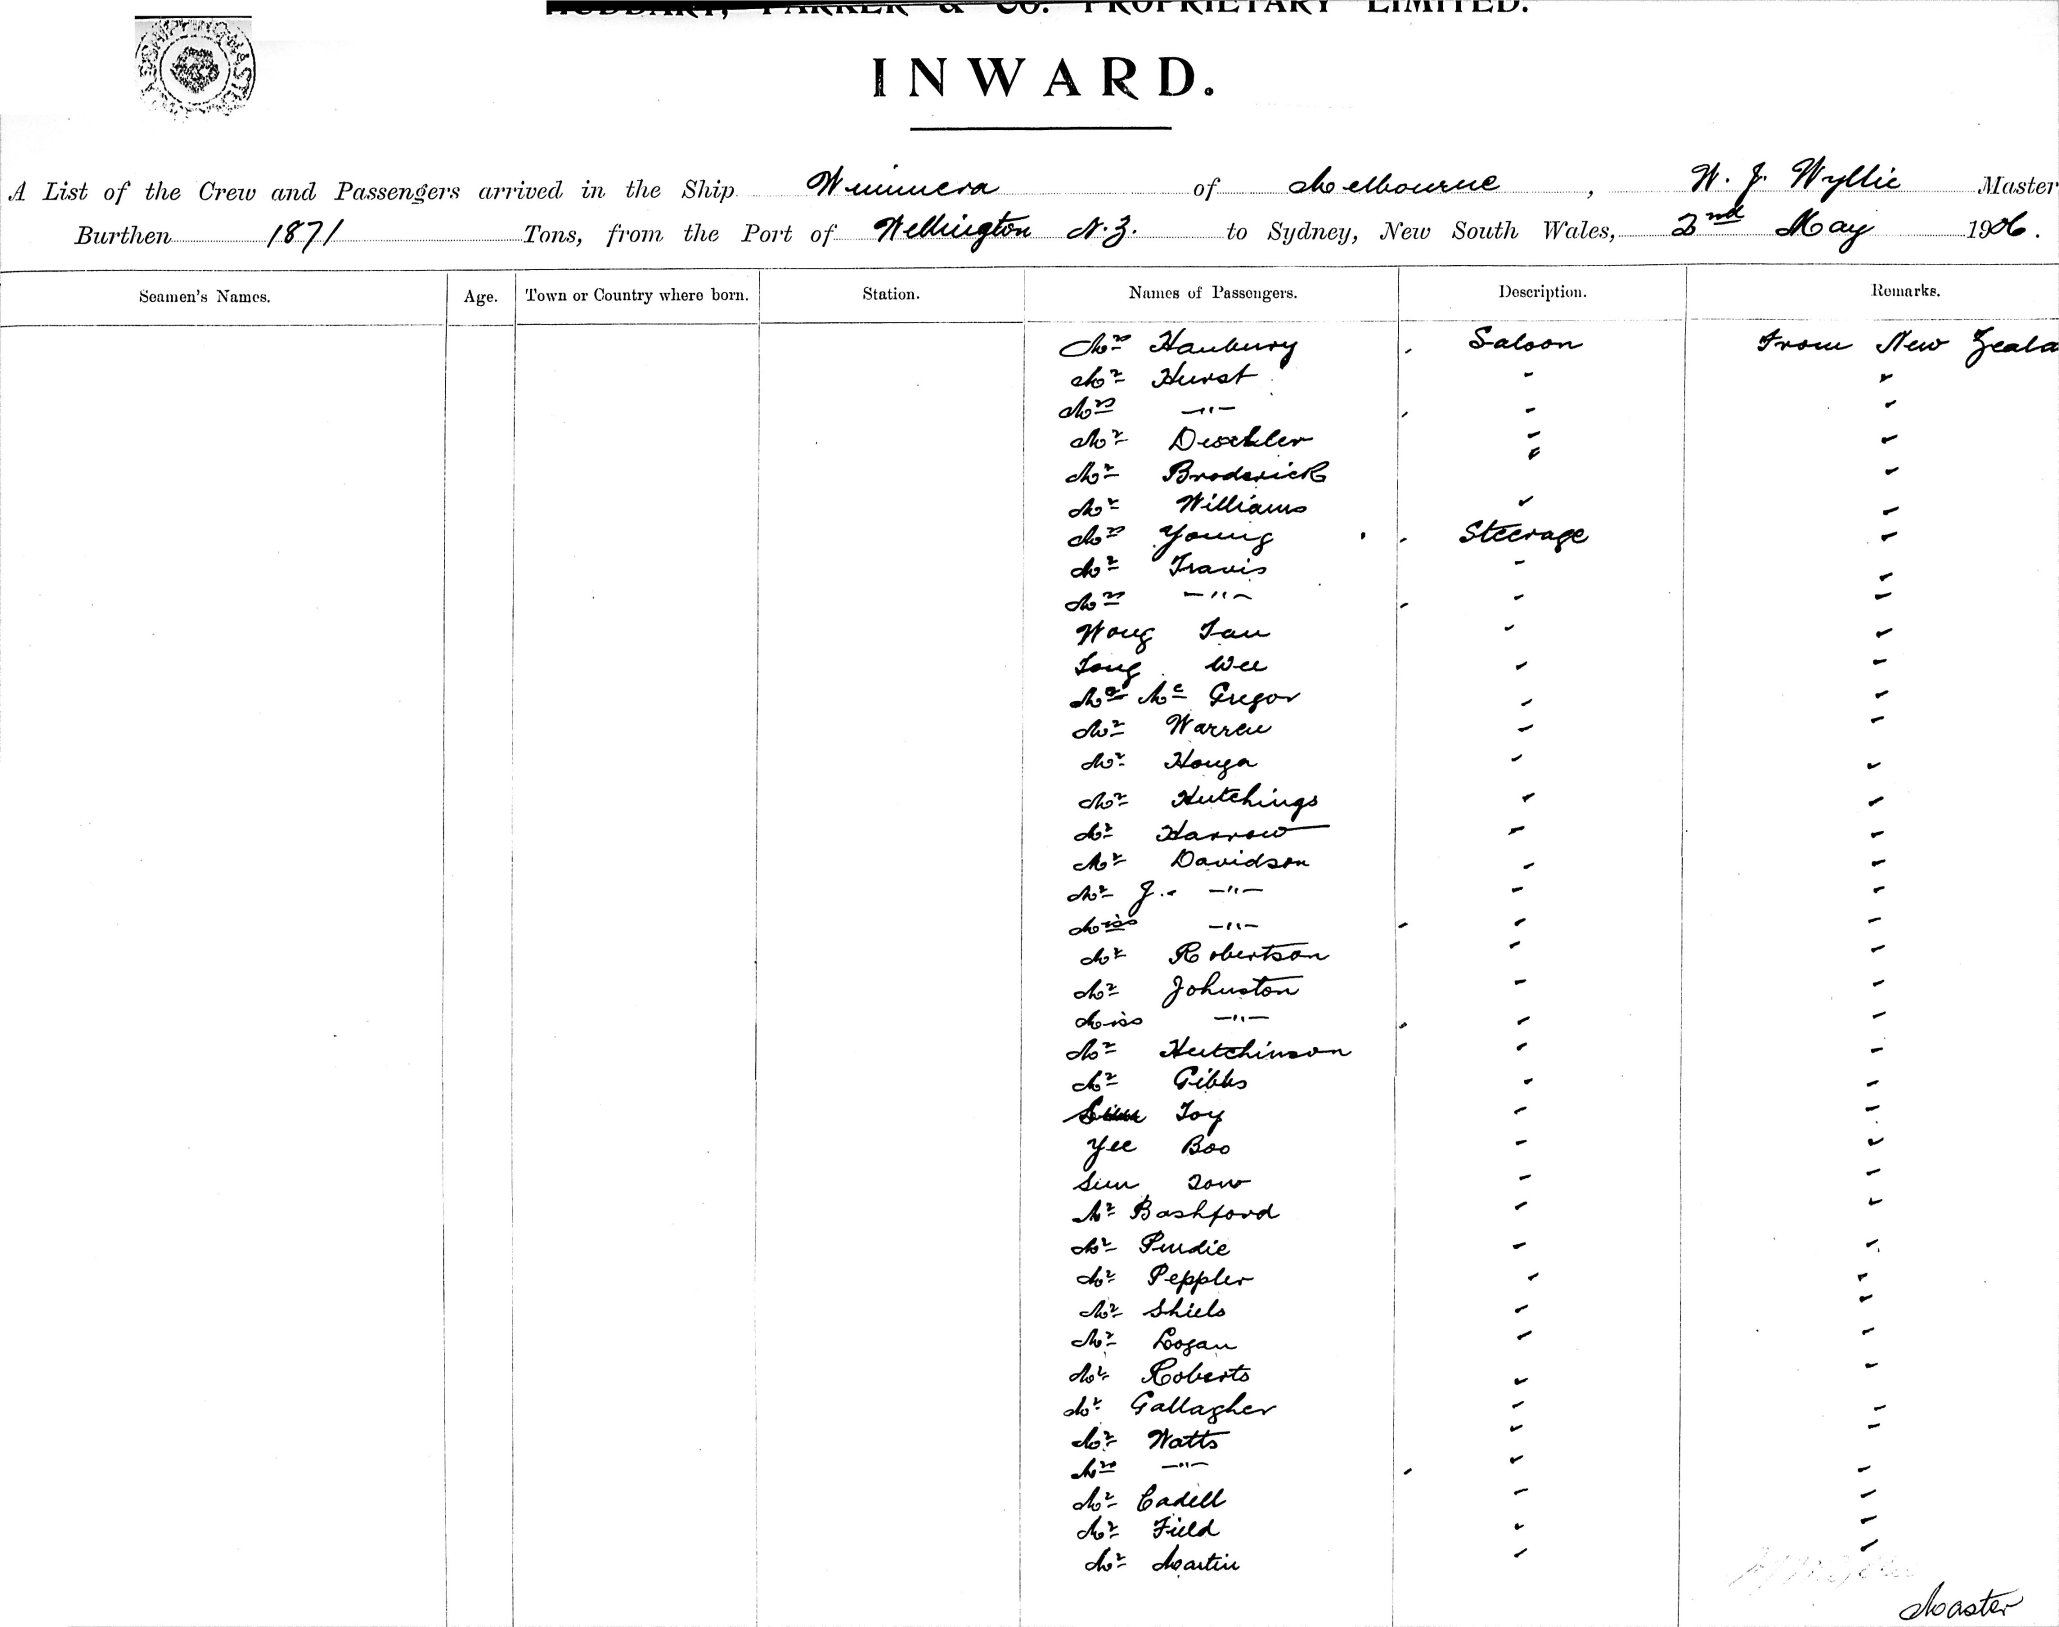 HUDDART, PARKER & CO. PROPRIETARY LIMITED.
INWARD.
A List of the Crew and Passengers arrived in the Ship Wimmera of Melbourne, W. J. Wyllie Master
Burthen 1871 Tons, from the Port of Wellington N.Z. to Sydney, New South Wales, 2nd May 1906.
Seamen's Names. Age. Town or Country where born. Station. Names of Passengers. Description. Remarks.
Mrs Hanbury Saloon From New Zeala
Mr Hurst
Mrs —"—
Mr
Mr Broderick
Mr Williams
Mrs Young Steerage
Mr Travis
Mrs —"—
Wong Tau
Tong Wee
Mr McGregor
Mr Warren
Mr Houga
Mr Hutchings
Mr Harrow
Mr Davidson
Mr J. —"—
Miss —"—
Mr Robertson
Mr Johnston
Miss —"—
Mr Hutchinson
Mr Gibbs
Toy
Yee Boo
Sun
Mr Bashford
Mr Purdie
Mr Peppler
Mr Shiels
Mr Logan
Mr Roberts
Mr Gallagher
Mr Watts
Mrs —"—
Mr Cadell
Mr Field
Mr Martin
Master